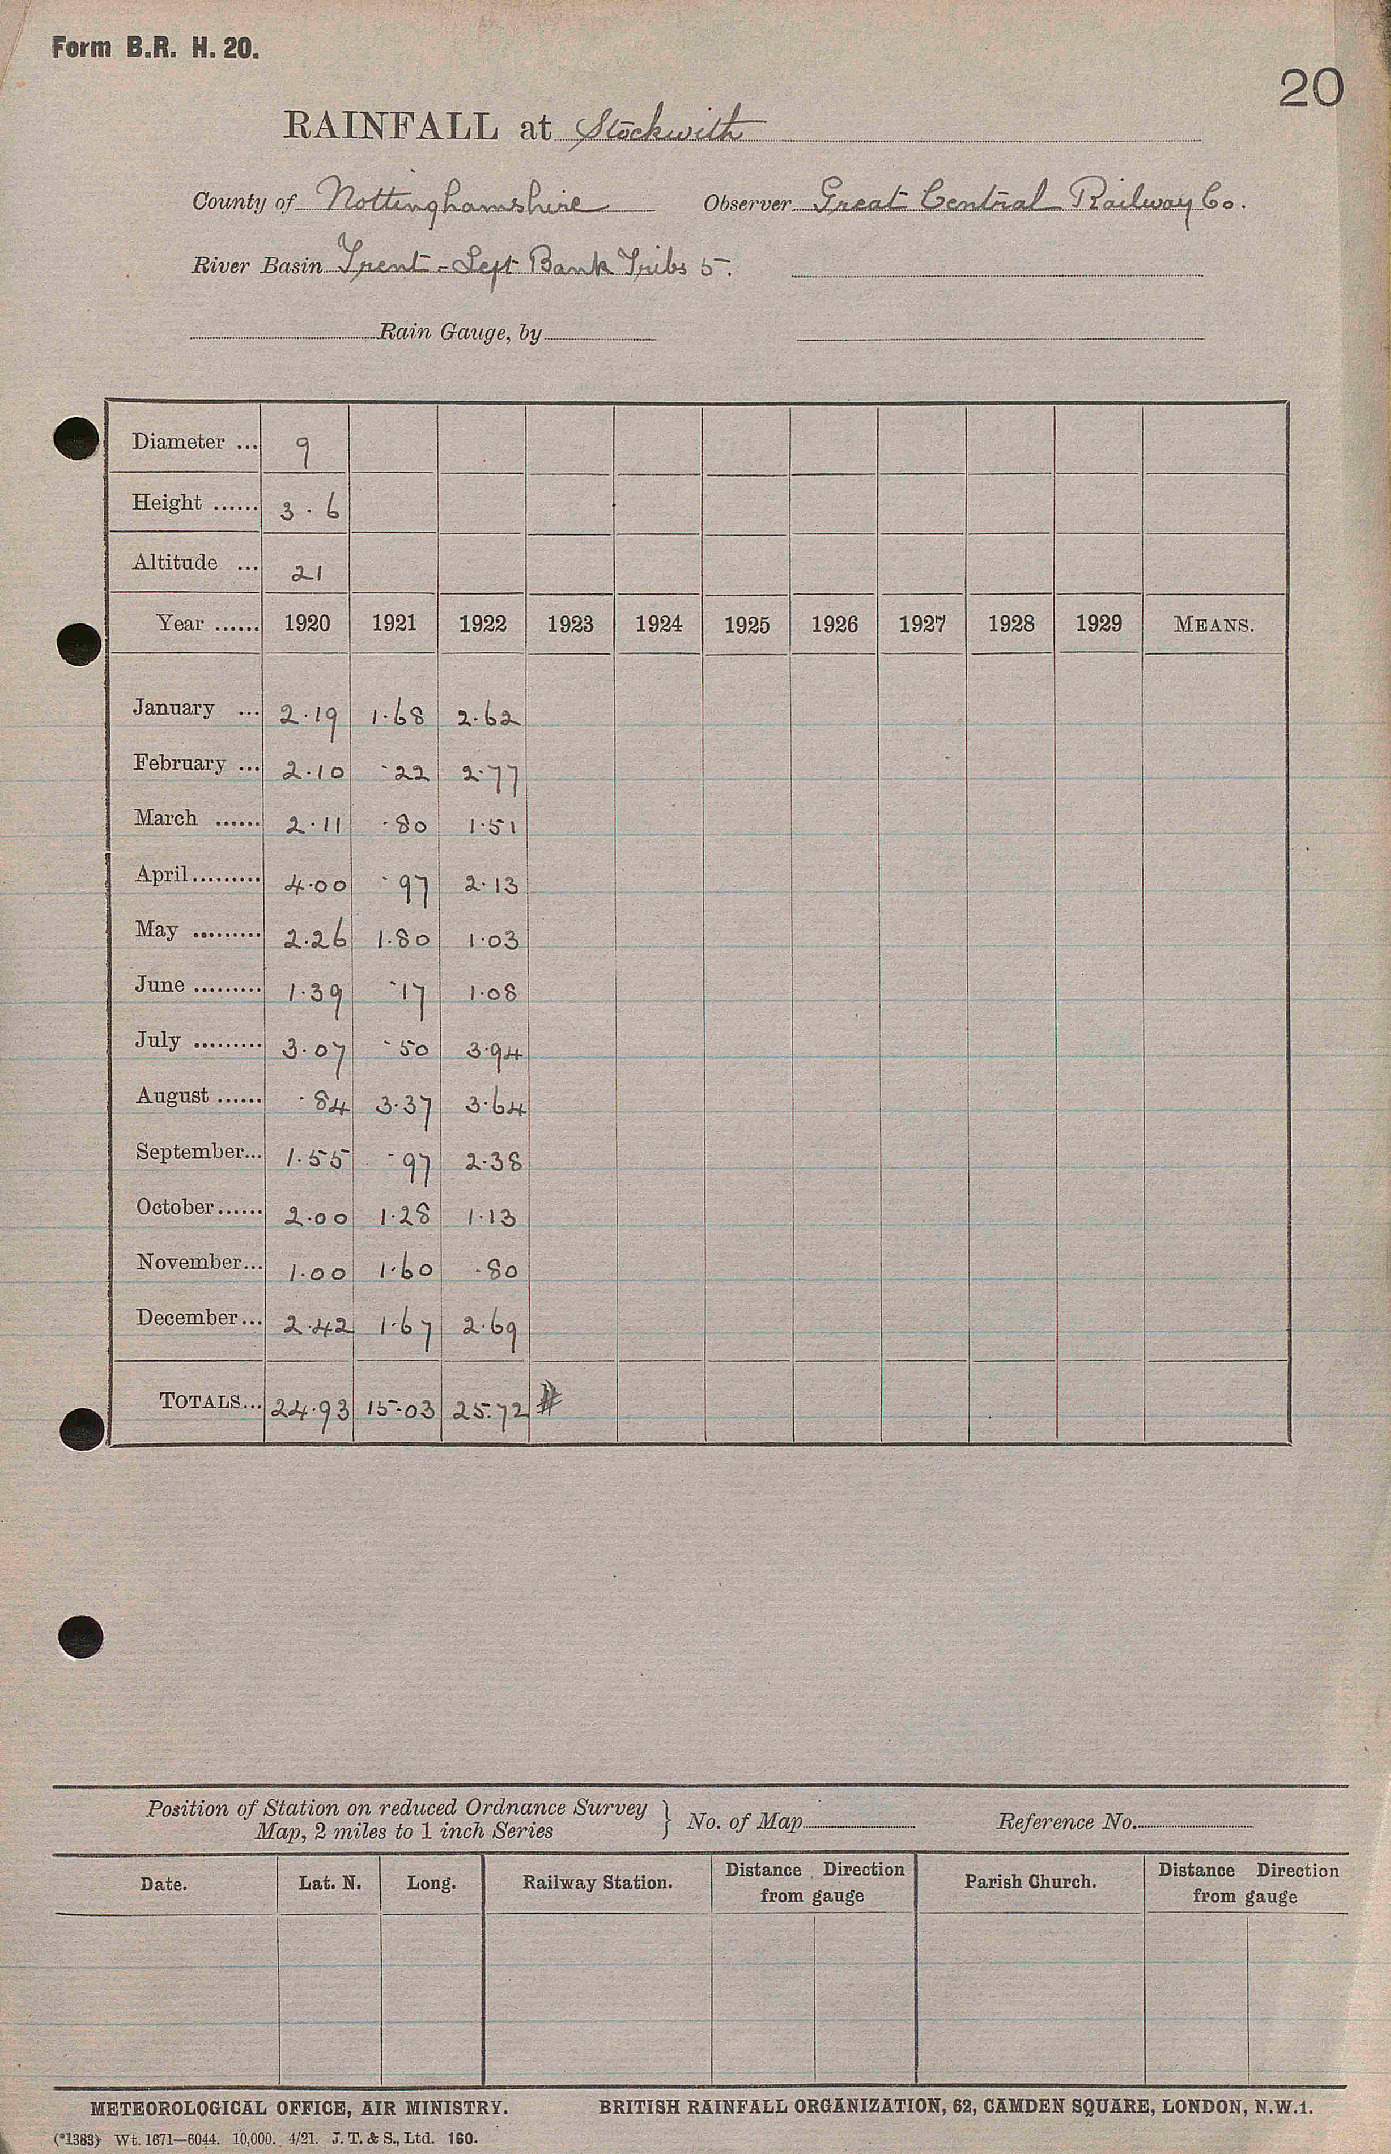 Form B.R. H. 20.
20
RAINFALL at Stockwith
County of Nottinghamshire Observer Great Central Railway Co.
River Basin Trent - Left Bank Tribs 5.
Rain Gauge, by
Diameter ... 9
Height ...... 3.6
Altitude ... 21
Year ...... 1920 1921 1922 1923 1924 1925 1926 1927 1928 1929 MEANS.
January ... 2.19 1.68 2.62
February ... 2.10 .22 2.77
March ...... 2.11 .80 1.51
April......... 4.00 .97 2.13
May ......... 2.26 1.80 1.03
June ......... 1.39 .17 1.08
July ......... 3.07 .50 3.94
August ...... .84 3.37 3.64
September... 1.55 .97 2.38
October...... 2.00 1.28 1.13
November... 1.00 1.60 .80
December... 2.42 1.67 2.69
TOTALS... 24.93 15.03 25.72
Position of Station on reduced Ordnance Survey
Map, 2 miles to 1 inch Series } No. of Map Reference No.
Date. Lat. N. Long. Railway Station. Distance Direction from gauge Parish Church. Distance Direction from gauge
METEOROLOGICAL OFFICE, AIR MINISTRY. BRITISH RAINFALL ORGANIZATION, 62, CAMDEN SQUARE, LONDON, N.W.1.
(*1383) Wt. 1671—6044. 10,000. 4/21. J. T. & S., Ltd. 160.